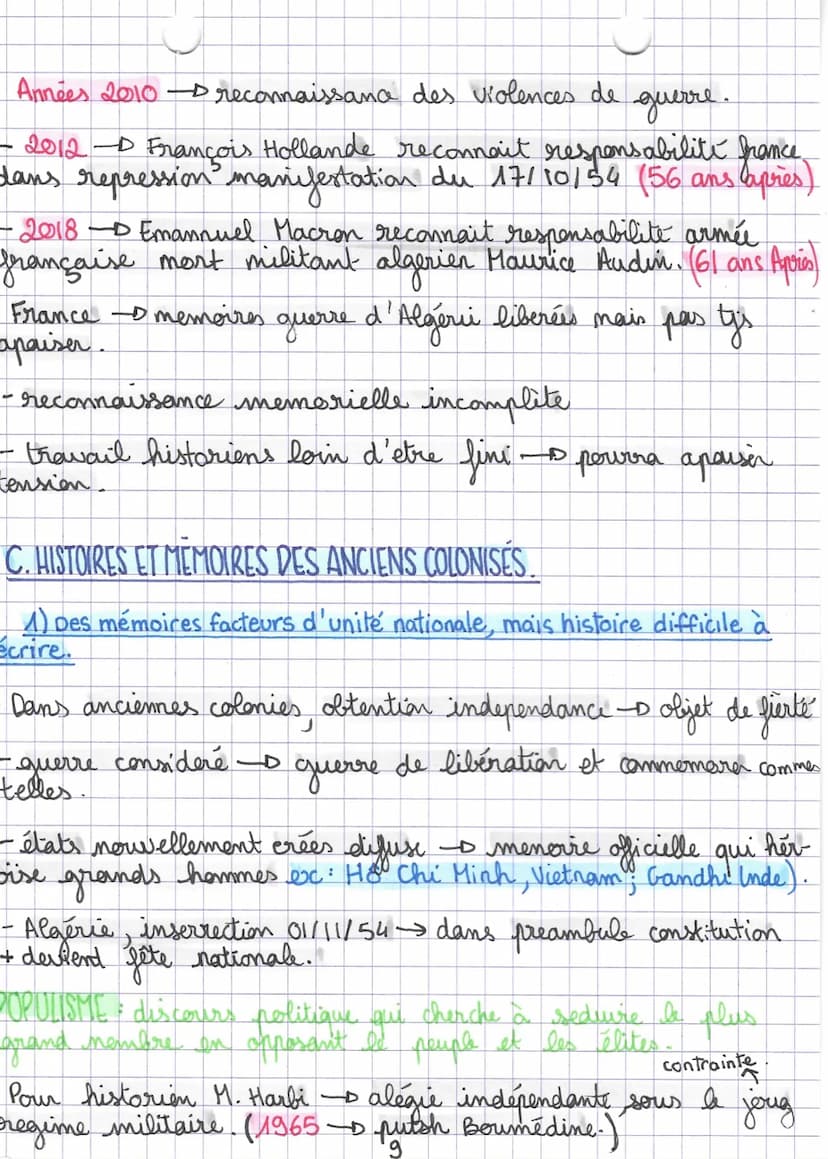 Années 2010 → reconnaissanc des violences de guerre.
- 2012 → François Hollande reconnait responsabilité france
dans repression manifestation du 17/10/54 (56 ans après)
- 2018 → Emannuel Macron reconnait responsabilité armée
française mort militant algerien Maurice Audin. (61 ans Après)
France → memoires guerre d'Algérie liberées mais pas tjs
apaiser.
- reconnaissance memorielle incomplète
- travail historiens loin d'etre fini → pourra apaiser
tension.
C. HISTOIRES ET MÉMOIRES DES ANCIENS COLONISÉS.
1) Des mémoires facteurs d'unité nationale, mais histoire difficile à
écrire.
Dans anciennes colonies, obtention independance → objet de fierté
- guerre consideré → guerre de libération et commemorer commes
telles.
- états nouvellement crées difuse → memoire officielle qui hér-
oïse grands hommes ex: Hô Chi Minh, Vietnam ; Gandhi Inde).
- Algérie, inserrection 01/11/54 → dans preambule constitution
+ devient fête nationale.
POPULISME : discours politique qui cherche à seduire le plus
grand nombre en opposant le peuple et les élites.
contrainte.
Pour historien M. Harbi → algéie indépendante sous le joug
regime militaire. (1965 → putsh Boumédine.)
9